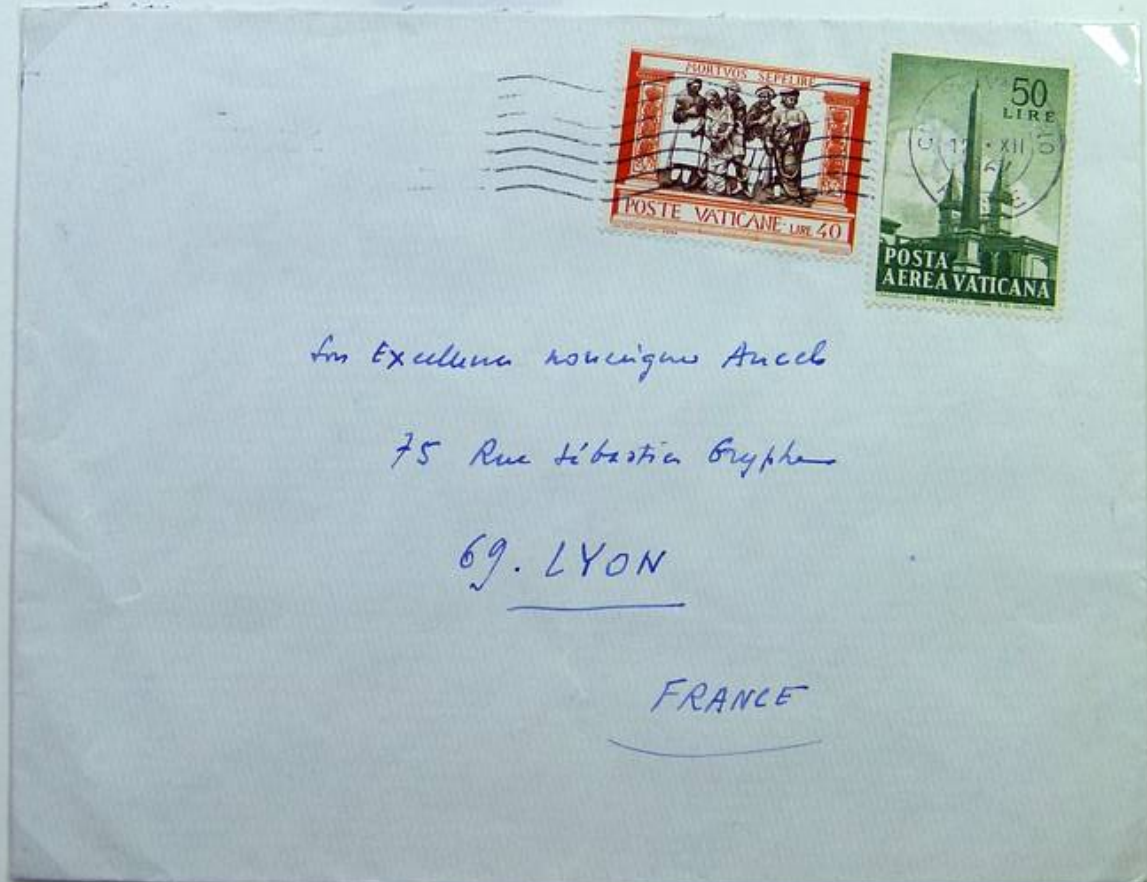 MORTVOS SEPELIRE
POSTE VATICANE LIRE 40
50
LIRE
POSTA
AEREA VATICANA
XII
Son Excellence Monseigneur Ancel
75 Rue Sébastien Gryphe
69. LYON
FRANCE